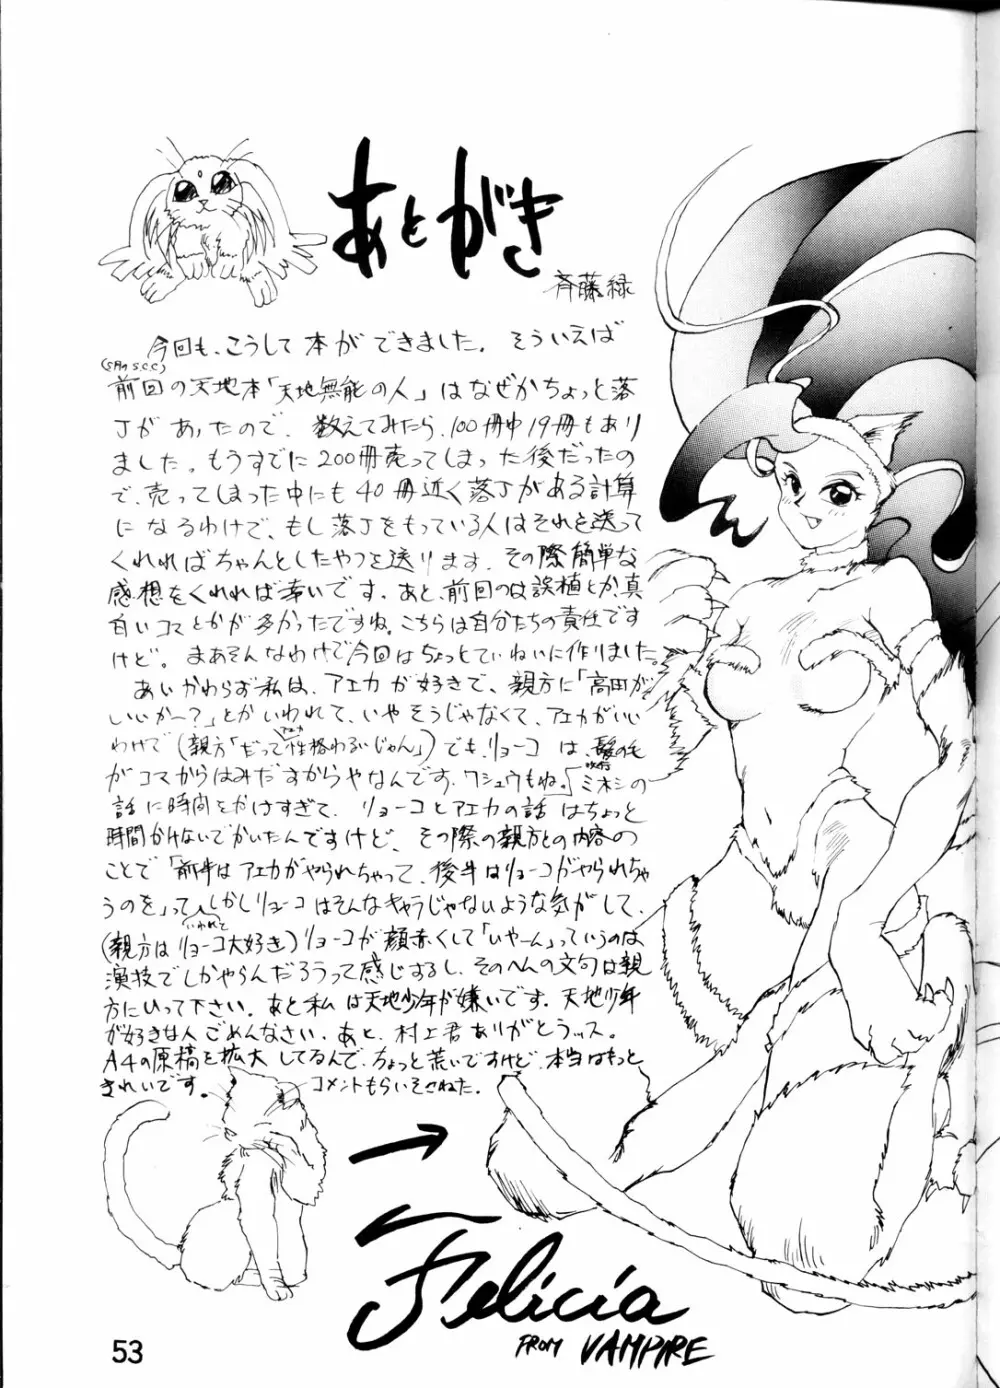 あとがき
斉藤緑
今回も、こうして本ができました。そういえば
(5月のS.C.C)
前回の天地本「天地無能の人」はなぜかちょっと落
丁があったので、数えてみたら、100冊中19冊もあり
ました。もうすでに200冊売ってしまった後だったの
で、売ってしまった中にも40冊近く落丁がある計算
になるわけで、もし落丁をもっている人はそれを送って
くれればちゃんとしたやつを送ります。その際簡単な
感想をくれれば幸いです。あと、前回のは誤植とか、真
白いコマとかが多かったですね。こちらは自分たちの責任です
けど。まあそんなわけで今回はちょっとていねいに作りました。
あいかわらず私は、アエカが好きで、親方に「高田が
いいかー?」とかいわれて、いやそうじゃなくて、アエカがいい
わけで(親方「だって性格わるいじゃん」)でも、リョーコは、髪の毛
がコマからはみだすからやなんです。ワシュウもね。「ミネシの
話に時間をかけすぎて、リョーコとアエカの話はちょっと
時間かけないでかいたんですけど、その際の親方との内容の
ことで「前半はアエカがやられちゃって、後半はリョーコがやられちゃ
うのを」って
いわれて
しかしリョーコはそんなキャラじゃないような気がして、
(親方はリョーコ大好き)リョーコが顔赤くして「いやーん」っていうのは
演技でしかやらんだろうって感じするし、そのへんの文句は親
方にいって下さい。あと私は天地少年が嫌いです。天地少年
が好きな人ごめんなさい。あと、村上君ありがとうッス。
A4の原稿を拡大してるんで、ちょっと荒いですけど、本当はもっと
きれいです。
コメントもらいそこねた。
Felicia
FROM VAMPIRE
53